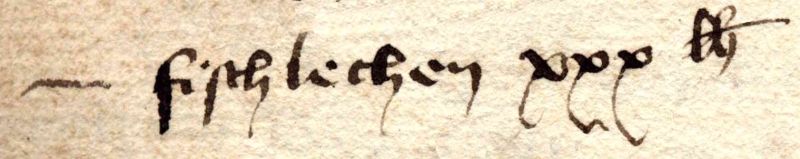 — fischlechen xxx